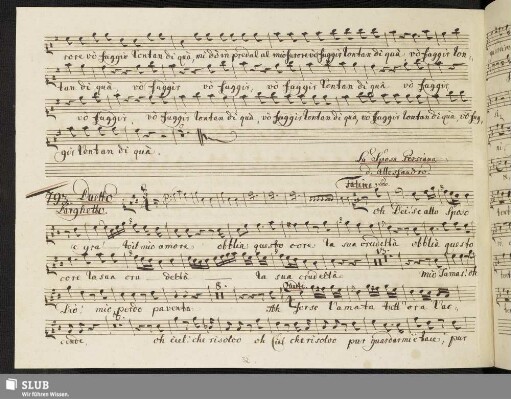 core vò fuggir lontan di quà, mi dò in preda al mio furore vò fuggir lontan di quà vò fuggir lon,,
tan di quà vò fuggir vò fuggir, vò fuggir lontan di quà vò fuggir
vò fuggir, vò fuggir lontan di quà, vò fuggir lontan di quà, vò fuggir lontan di quà vò fug,,
gir lontan di quà.
La Sposa Persiana
d'Allessandri
Fatima
Duetto
Larghetto
oh Dei: se allo Sposo
e gra: to il mio amore obblia questo core la sua crudeltà obblia questo
core la sua cru deltà la sua crudeltà mio Tamas! oh
Dio! mio perdo pavento Ah forse l'amata tutt' ora l'ac,,
cende, oh ciel! che risolvo oh ciel che risolvo pur guardarmi e tace, pur
SLUB
Wir führen Wissen.